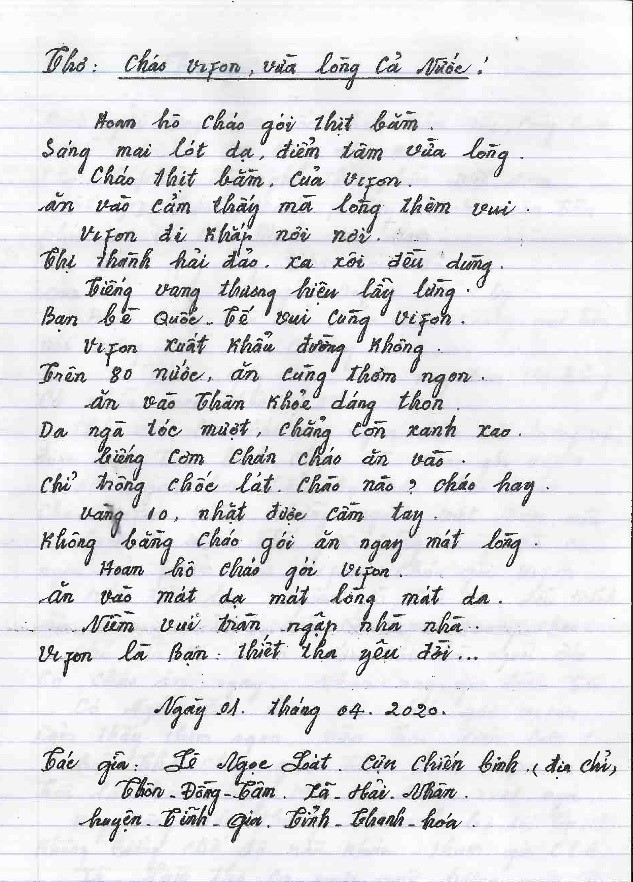 Thơ: Cháo Vifon, vừa lòng Cả Nước!
Hoan hô Cháo gói thịt bằm.
Sáng mai lót dạ, điểm tâm vừa lòng.
Cháo thịt bằm, của Vifon.
Ăn vào cảm thấy mà lòng thêm vui.
Vifon đi khắp nơi nơi.
Thị thành hải đảo, xa xôi đều dùng.
Tiếng vang thương hiệu lẫy lừng.
Bạn bè Quốc - Tế vui cùng Vifon.
Vifon xuất khẩu đường không.
Trên 80 nước, ăn cũng thơm ngon.
Ăn vào Thân khỏe dáng thon
Da ngà tóc mượt, chẳng còn xanh xao.
Biếng cơm chán cháo ăn vào.
Chỉ trông chốc lát. Cháo nào? Cháo hay.
Vàng 10, nhặt được cầm tay.
Không bằng cháo gói ăn ngay mát lòng.
Hoan hô cháo gói Vifon.
Ăn vào mát dạ mát lòng mát da.
Niềm vui tràn ngập nhà nhà.
Vifon là Bạn: thiết tha yêu đời...
Ngày 01. tháng 04. 2020.
Tác giả: Lê Ngọc Loát. Cựu Chiến binh. (địa chỉ,
Thôn - Đồng - Tâm. Xã - Hải - Nhân.
huyện - Tĩnh - Gia. Tỉnh - Thanh - hóa.